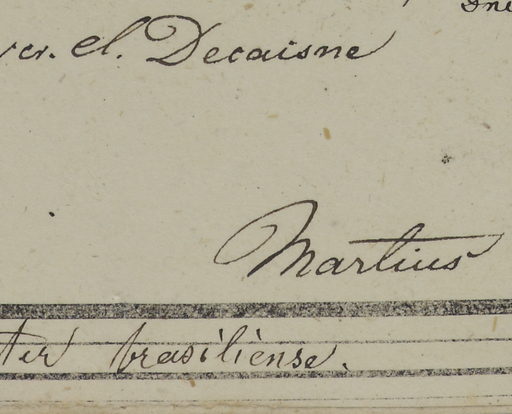 cl. Decaisne
Martius
brasiliense.